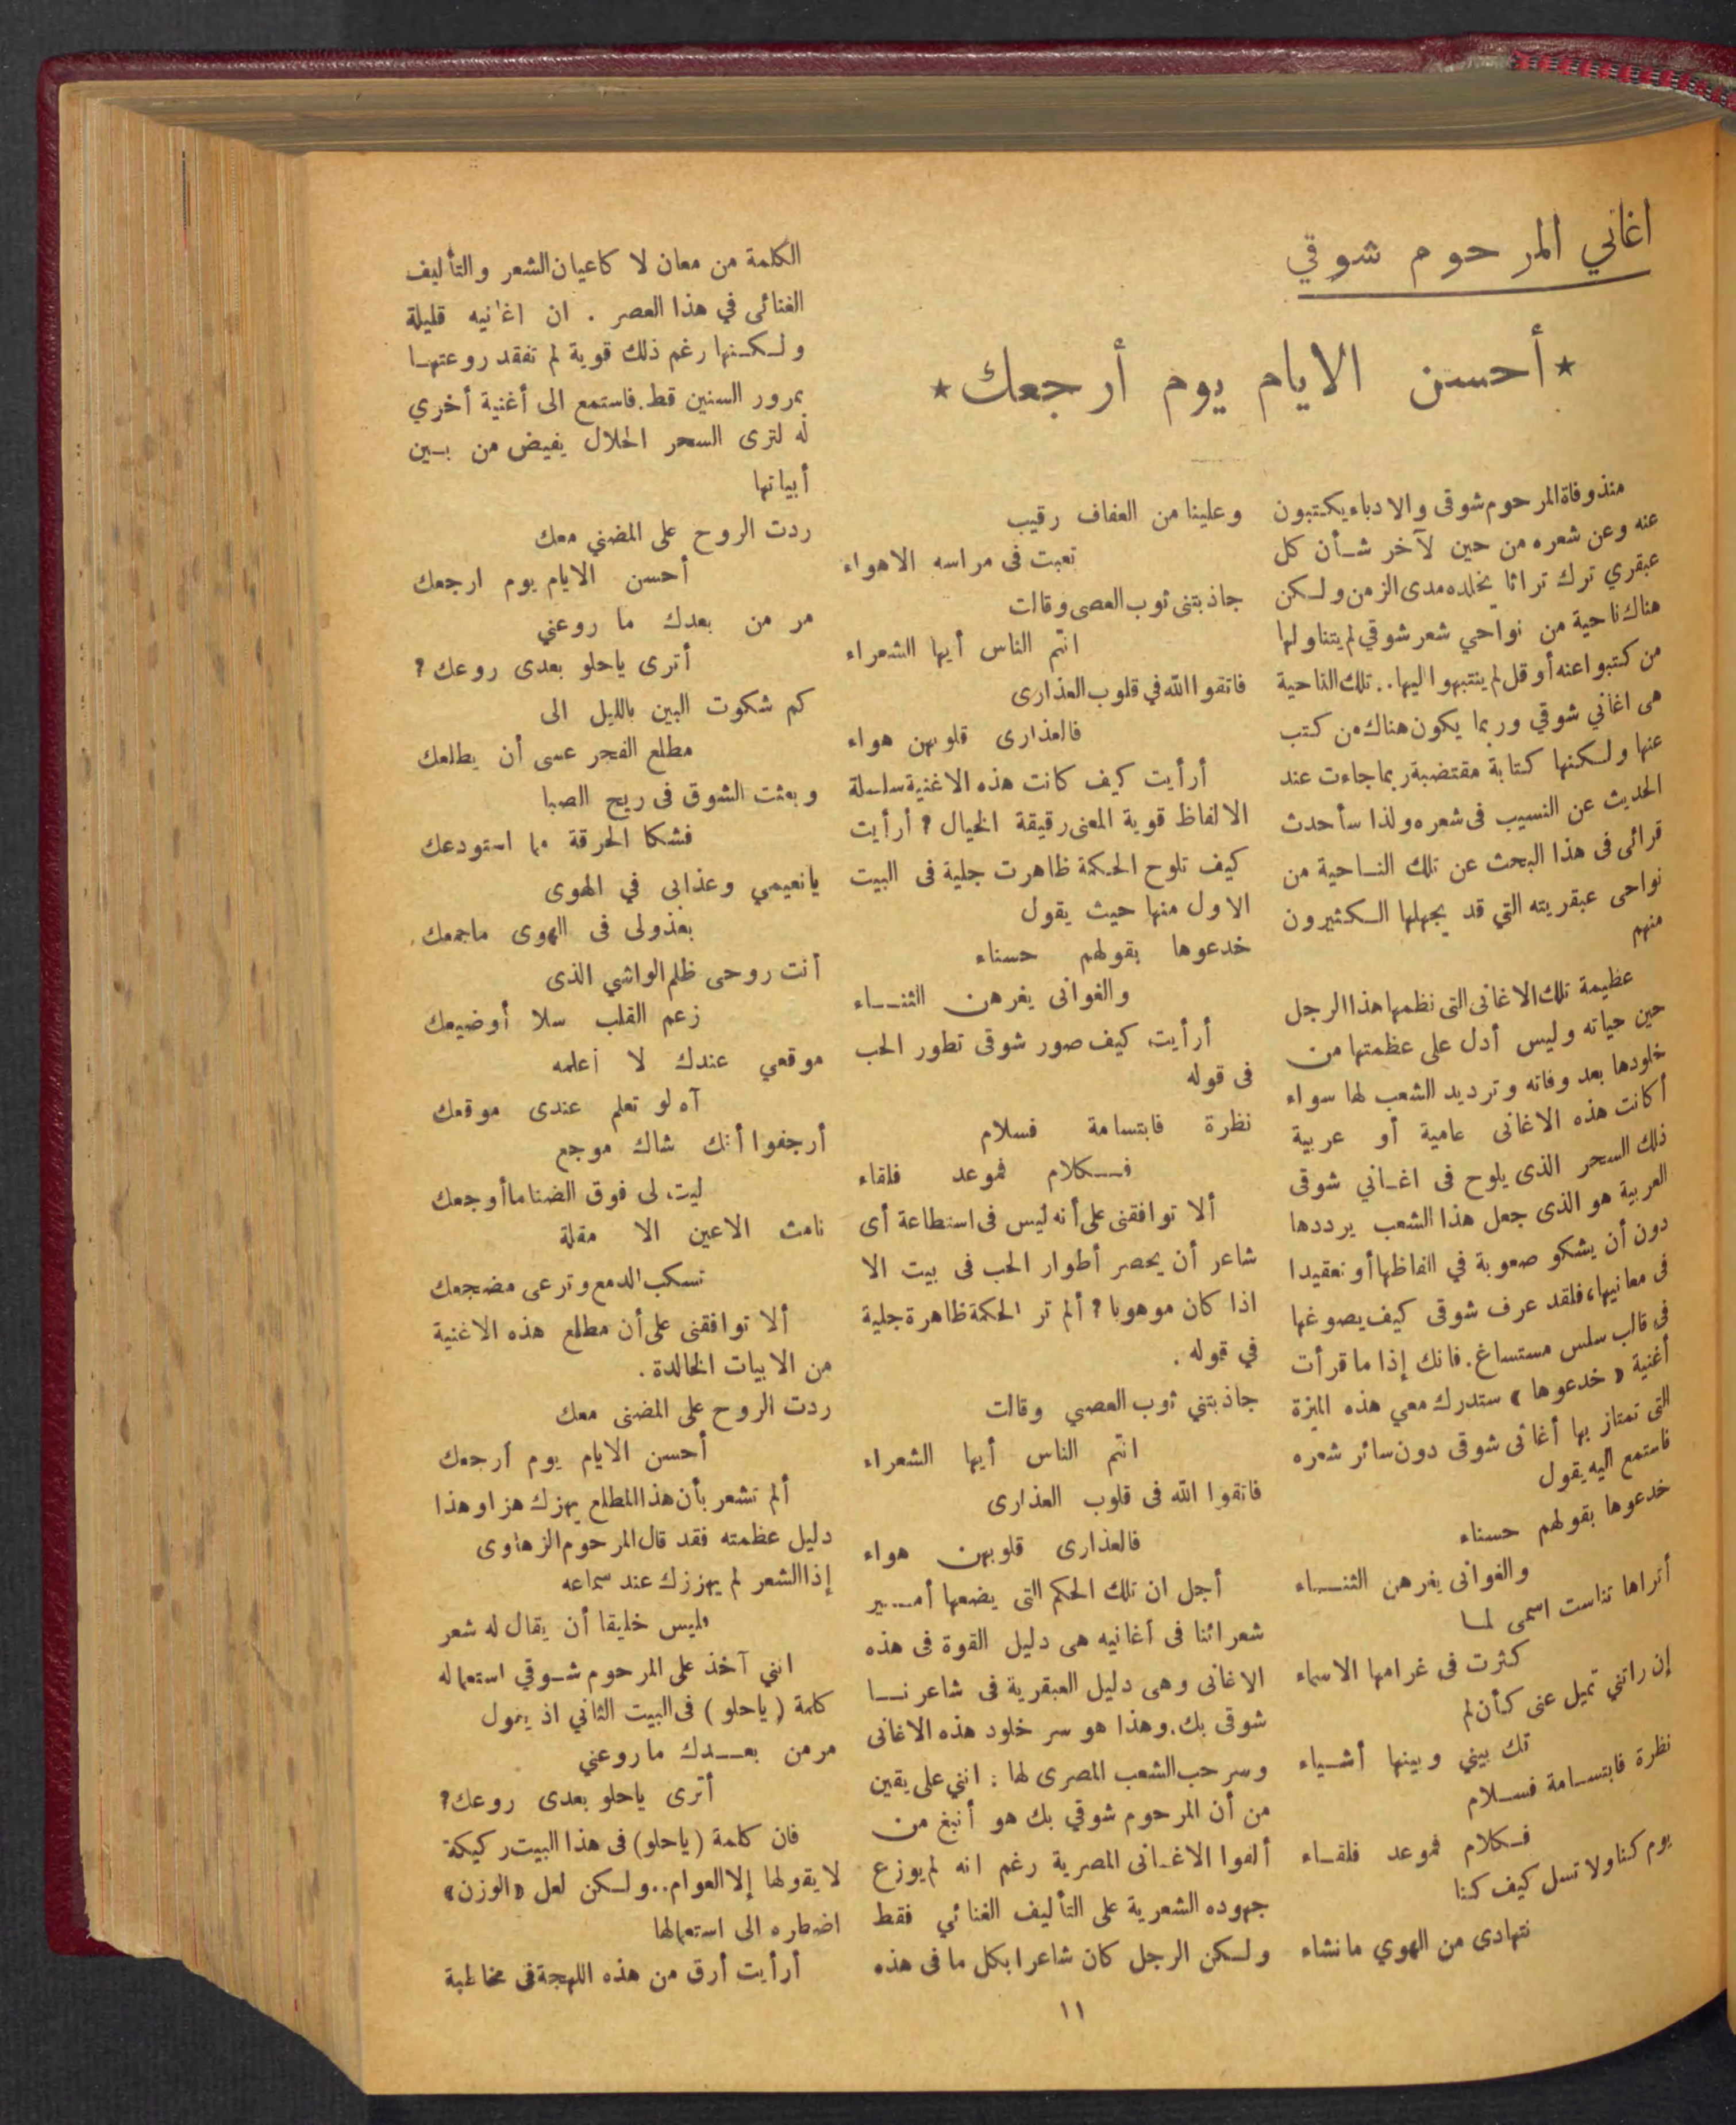 اغاني المرحوم شوقي
★ أحسن الايام يوم أرجعك ★
منذ وفاة المرحوم شوقى والادباء يكتبون
عنه وعن شعره من حين لآخر شأن كل
عبقري ترك تراثا يخلده مدى الزمن ولكن
هناك ناحية من نواحي شعر شوقي لم يتناولها
من كتبوا عنه أو قل لم ينتبهوا اليها.. تلك الناحية
هى اغاني شوقي وربما يكون هناك من كتب
عنها ولكنها كتابة مقتضبة ربما جاءت عند
الحديث عن النسيب فى شعره ولذا سأحدث
قرائى فى هذا البحث عن تلك الناحية من
نواحى عبقريته التي قد يجهلها الكثيرون
منهم
عظيمة تلك الاغانى التى نظمها هذا الرجل
حين حياته وليس أدل على عظمتها من
خلودها بعد وفاته وترديد الشعب لها سواء
أكانت هذه الاغانى عامية أو عربية
ذلك السحر الذى يلوح فى اغاني شوقى
العربية هو الذى جعل هذا الشعب يرددها
دون أن يشكو صعوبة في الفاظها أو تعقيدا
فى معانيها، فلقد عرف شوقى كيف يصوغها
فى قالب سلس مستساغ. فانك إذا ما قرأت
أغنية « خدعوها » ستدرك معي هذه الميزة
التى تمتاز بها أغانى شوقى دون سائر شعره
فاستمع اليه يقول
خدعوها بقولهم حسناء
والغوانى يغرهن الثناء
أتراها تناست اسمى لما
كثرت فى غرامها الاسماء
إن راتني تميل عنى كأن لم
تك بيني وبينها أشياء
نظرة فابتسامة فسلام
فكلام فموعد فلقاء
يوم كنا ولا تسل كيف كنا
نتهادى من الهوي ما نشاء
وعلينا من العفاف رقيب
تعبت فى مراسه الاهواء
جاذبتنى ثوب العصى وقالت
انتم الناس أيها الشعراء
فاتقوا الله في قلوب العذارى
فالعذارى قلوبهن هواء
أرأيت كيف كانت هذه الاغنية سلسلة
الالفاظ قوية المعنى رقيقة الخيال ؟ أرأيت
كيف تلوح الحكمة ظاهرت جلية فى البيت
الاول منها حيث يقول
خدعوها بقولهم حسناء
والغوانى يغرهن الثناء
أرأيت كيف صور شوقى تطور الحب
فى قوله
نظرة فابتسامة فسلام
فكلام فموعد فلقاء
ألا توافقنى على أنه ليس فى استطاعة أى
شاعر أن يحصر أطوار الحب فى بيت الا
اذا كان موهوبا ؟ ألم تر الحكمة ظاهرة جلية
في قوله .
جاذبتني ثوب العصي وقالت
انتم الناس أيها الشعراء
فاتقوا الله فى قلوب العذارى
فالعذارى قلوبهن هواء
أجل ان تلك الحكم التى يضعها أمير
شعرائنا فى أغانيه هى دليل القوة فى هذه
الاغانى وهى دليل العبقرية فى شاعرنا
شوقى بك. وهذا هو سر خلود هذه الاغانى
وسر حب الشعب المصرى لها : انني على يقين
من أن المرحوم شوقي بك هو أنبغ من
ألفوا الاغانى المصرية رغم انه لم يوزع
جهوده الشعرية على التأليف الغنائي فقط
ولكن الرجل كان شاعرا بكل ما فى هذه
الكلمة من معان لا كاعيان الشعر والتأليف
الغنائى في هذا العصر . ان اغانيه قليلة
ولكنها رغم ذلك قوية لم تفقد روعتها
بمرور السنين قط. فاستمع الى أغنية أخري
له لترى السحر الحلال يفيض من بين
أبياتها
ردت الروح على المضني معك
أحسن الايام يوم ارجعك
مر من بعدك ما روعني
أترى ياحلو بعدى روعك ؟
كم شكوت البين بالليل الى
مطلع الفجر عسى أن يطلعك
وبعثت الشوق فى ريح الصبا
فشكا الحرقة مما استودعك
يانعيمي وعذابى في الهوى
بعذولى فى الهوى ماجمعك
أنت روحى ظلم الواشي الذى
زعم القلب سلا أوضيعك
موقعي عندك لا أعلمه
آه لو تعلم عندى موقعك
أرجفوا أنك شاك موجع
ليت لى فوق الضنا ما أوجعك
نامت الاعين الا مقلة
تسكب الدمع وترعى مضجعك
ألا توافقنى على أن مطلع هذه الاغنية
من الابيات الخالدة .
ردت الروح على المضنى معك
أحسن الايام يوم أرجعك
ألم تشعر بأن هذا المطلع يهزك هزا وهذا
دليل عظمته فقد قال المرحوم الزهاوى
إذا الشعر لم يهززك عند سماعه
فليس خليقا أن يقال له شعر
انني آخذ على المرحوم شوقي استعماله
كلمة ( ياحلو ) فى البيت الثاني اذ يقول
مر من بعدك ما روعني
أترى ياحلو بعدى روعك؟
فان كلمة ( ياحلو) فى هذا البيت ركيكة
لا يقولها إلا العوام.. ولكن لعل «الوزن»
اضطره الى استعمالها
أرأيت أرق من هذه اللهجة فى مخاطبة
١١